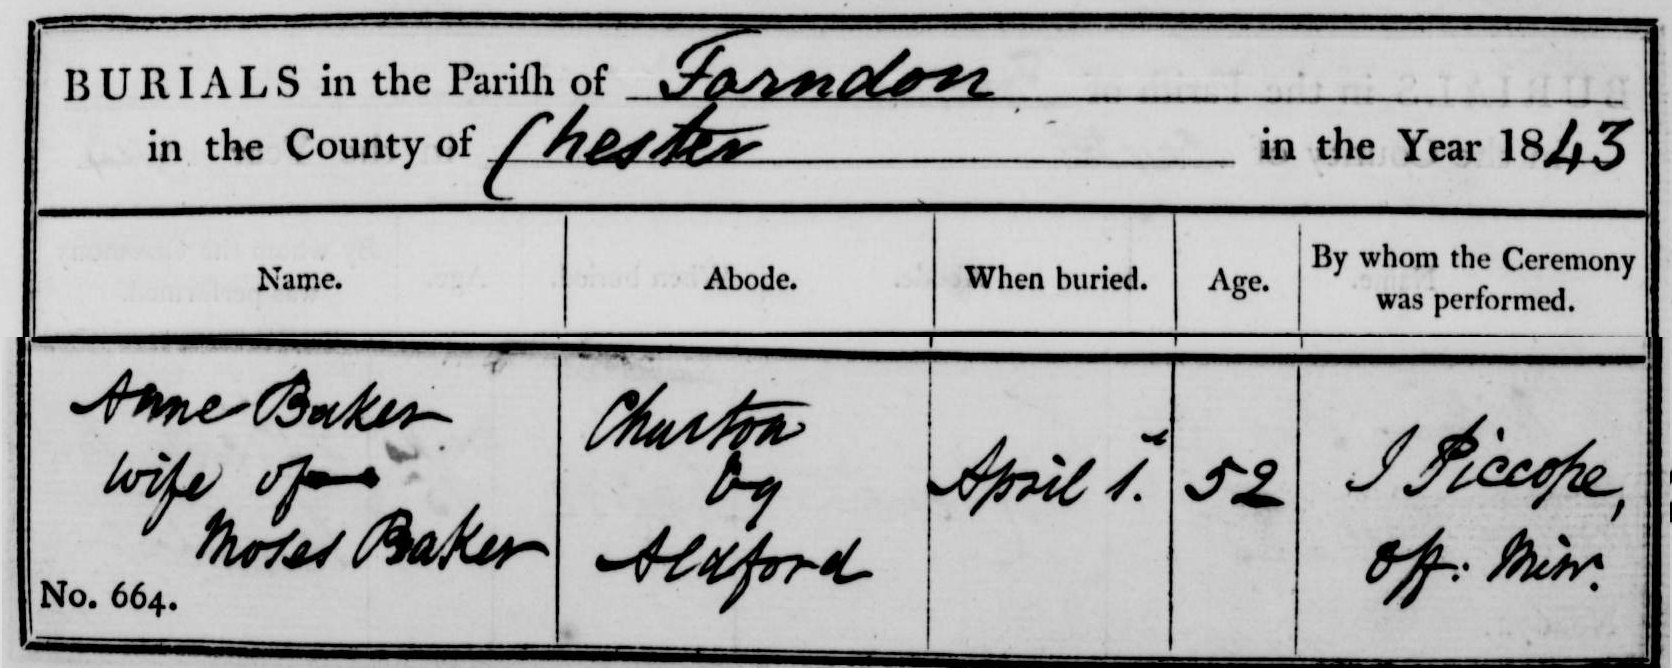 BURIALS in the Pariſh of Farndon
in the County of Chester in the Year 1843
Name. Abode. When buried. Age. By whom the Ceremony was performed.
Anne Baker
wife of
Moses Baker
No. 664.
Churton
by
Aldford
April 1.st
52
J Piccope,
Off: Minr.